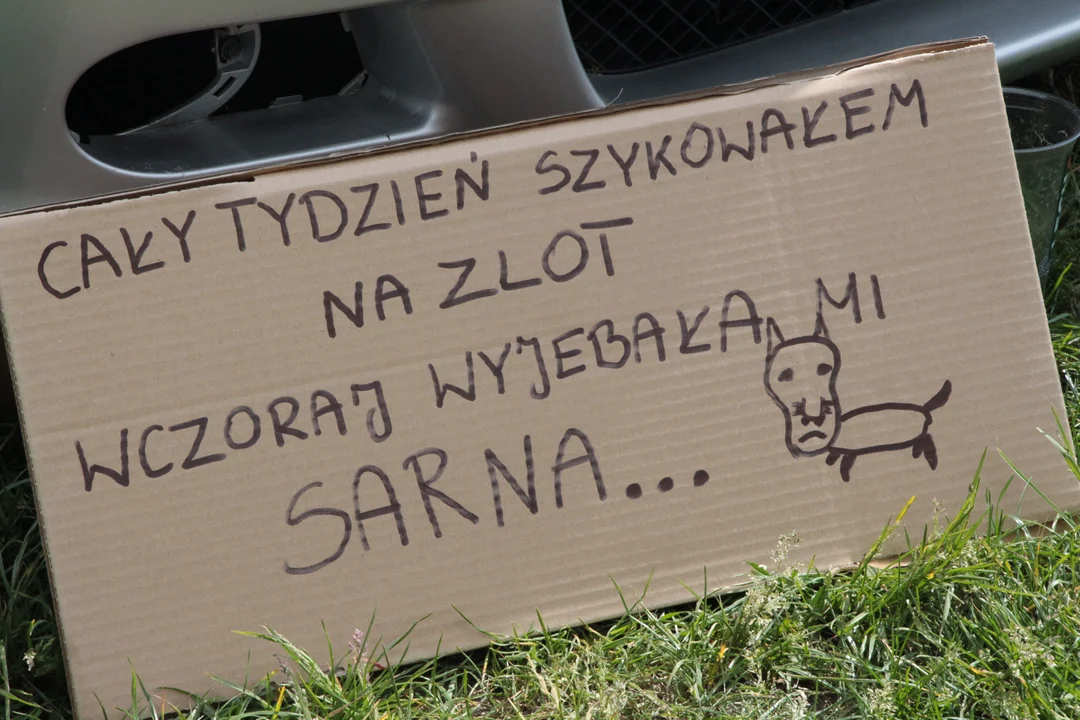 CAŁY TYDZIEŃ SZYKOWAŁEM
NA ZLOT
WCZORAJ WYJEBAŁA MI
SARNA...